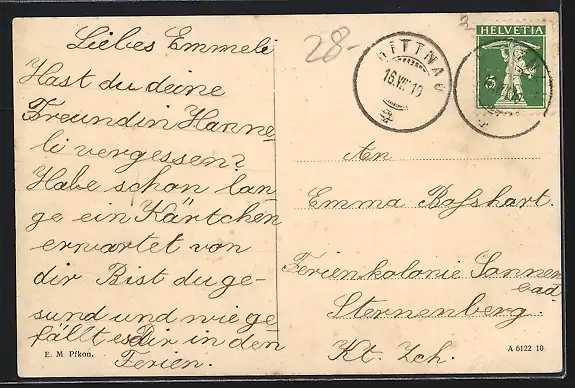 Liebes Emmeli
Hast du deine
Freundin Hanne-
li vergessen?
Habe schon lan
ge ein Kärtchen
erwartet von
dir Bist du ge-
sund und wie ge
fällt es Dir in den
Ferien.
E. M Pfkon.
28-
DITTNAU
16.VII.10
HELVETIA
5
An
Emma Boßhart.
Ferienkolonie Sonnen
bad
Sternenberg.
Kt. Zch.
A 6122 10